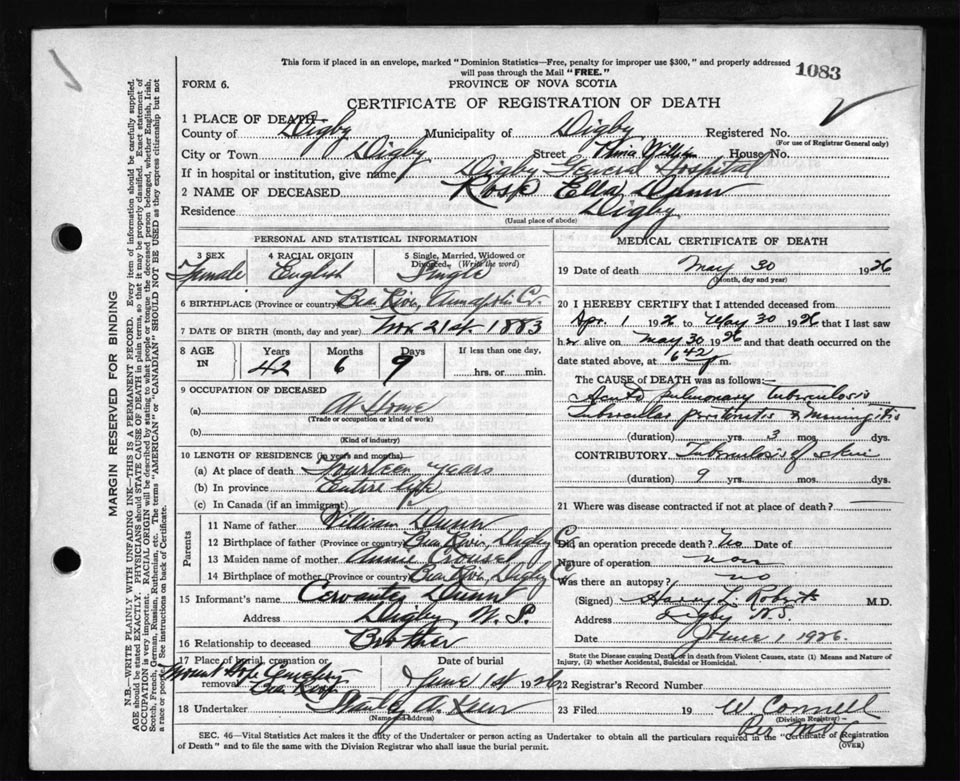 This form if placed in an envelope, marked "Dominion Statistics—Free, penalty for improper use $300," and properly addressed
will pass through the Mail "FREE."
1083
FORM 6.
PROVINCE OF NOVA SCOTIA
CERTIFICATE OF REGISTRATION OF DEATH
1 PLACE OF DEATH—
County of Digby Municipality of Digby Registered No.
(For use of Registrar General only)
City or Town Digby Street House No.
If in hospital or institution, give name Digby General Hospital
2 NAME OF DECEASED Rose Ella Dunn
Residence Digby
(Usual place of abode)
PERSONAL AND STATISTICAL INFORMATION
3 SEX 4 RACIAL ORIGIN 5 Single, Married, Widowed or
Divorced. (Write the word)
Female English Single
6 BIRTHPLACE (Province or country) Bear River, Annapolis Co.
7 DATE OF BIRTH (month, day and year) Nov. 21st. 1883
8 AGE IN Years Months Days If less than one day,
42 6 9 hrs. or min.
9 OCCUPATION OF DECEASED
(a) At Home
(Trade or occupation or kind of work)
(b)
(Kind of industry)
10 LENGTH OF RESIDENCE (in years and months)
(a) At place of death Fourteen years
(b) In province Entire life
(c) In Canada (if an immigrant)
Parents
11 Name of father William Dunn
12 Birthplace of father (Province or country) Bear River, Digby Co.
13 Maiden name of mother Annie Crouse
14 Birthplace of mother (Province or country) Bear River, Digby Co.
15 Informant's name Cervantes Dunn
Address Digby, N. S.
16 Relationship to deceased Brother
17 Place of burial, cremation or removal Date of burial
Mount Hope Cemetery
Bear River June 1st 1926
18 Undertaker Stanley A.
(Name and address)
MEDICAL CERTIFICATE OF DEATH
19 Date of death May 30 1926
(Month, day and year)
20 I HEREBY CERTIFY that I attended deceased from
Apr. 1 1926 to May 30 1926 that I last saw
her alive on May 30 1926 and that death occurred on the
date stated above, at m.
The CAUSE OF DEATH was as follows:
Acute pulmonary tuberculosis
Tubercular peritonitis & meningitis
(duration) yrs. 3 mos. dys.
CONTRIBUTORY Tuberculosis of skin
(duration) 9 yrs. mos. dys.
21 Where was disease contracted if not at place of death?
Did an operation precede death? No Date of
Nature of operation none
Was there an autopsy? no
(Signed) Harry L. Roberts M.D.
Address Digby N.S.
Date June 1 1926.
State the Disease causing Death, or in death from Violent Causes, state (1) Means and Nature of
Injury, (2) whether Accidental, Suicidal or Homicidal.
22 Registrar's Record Number
23 Filed 19 W. Connell
(Division Registrar)
Per
SEC. 46—Vital Statistics Act makes it the duty of the Undertaker or person acting as Undertaker to obtain all the particulars required in the "Certificate of Registration
of Death" and to file the same with the Division Registrar who shall issue the burial permit.
(OVER)
MARGIN RESERVED FOR BINDING
N.B.—WRITE PLAINLY WITH UNFADING INK—THIS IS A PERMANENT RECORD. Every item of information should be carefully supplied.
AGE should be stated EXACTLY. PHYSICIANS should STATE CAUSE OF DEATH in plain terms, so that it may be properly classified. Exact statement of
OCCUPATION is very important. RACIAL ORIGIN will be described by stating to what people or tongue the deceased person belonged, whether English, Irish,
Scotch, French, German, Russian, Ruthenian, etc. The terms "AMERICAN" or "CANADIAN" SHOULD NOT BE USED as they express citizenship but not
a race or people. See instructions on back of Certificate.